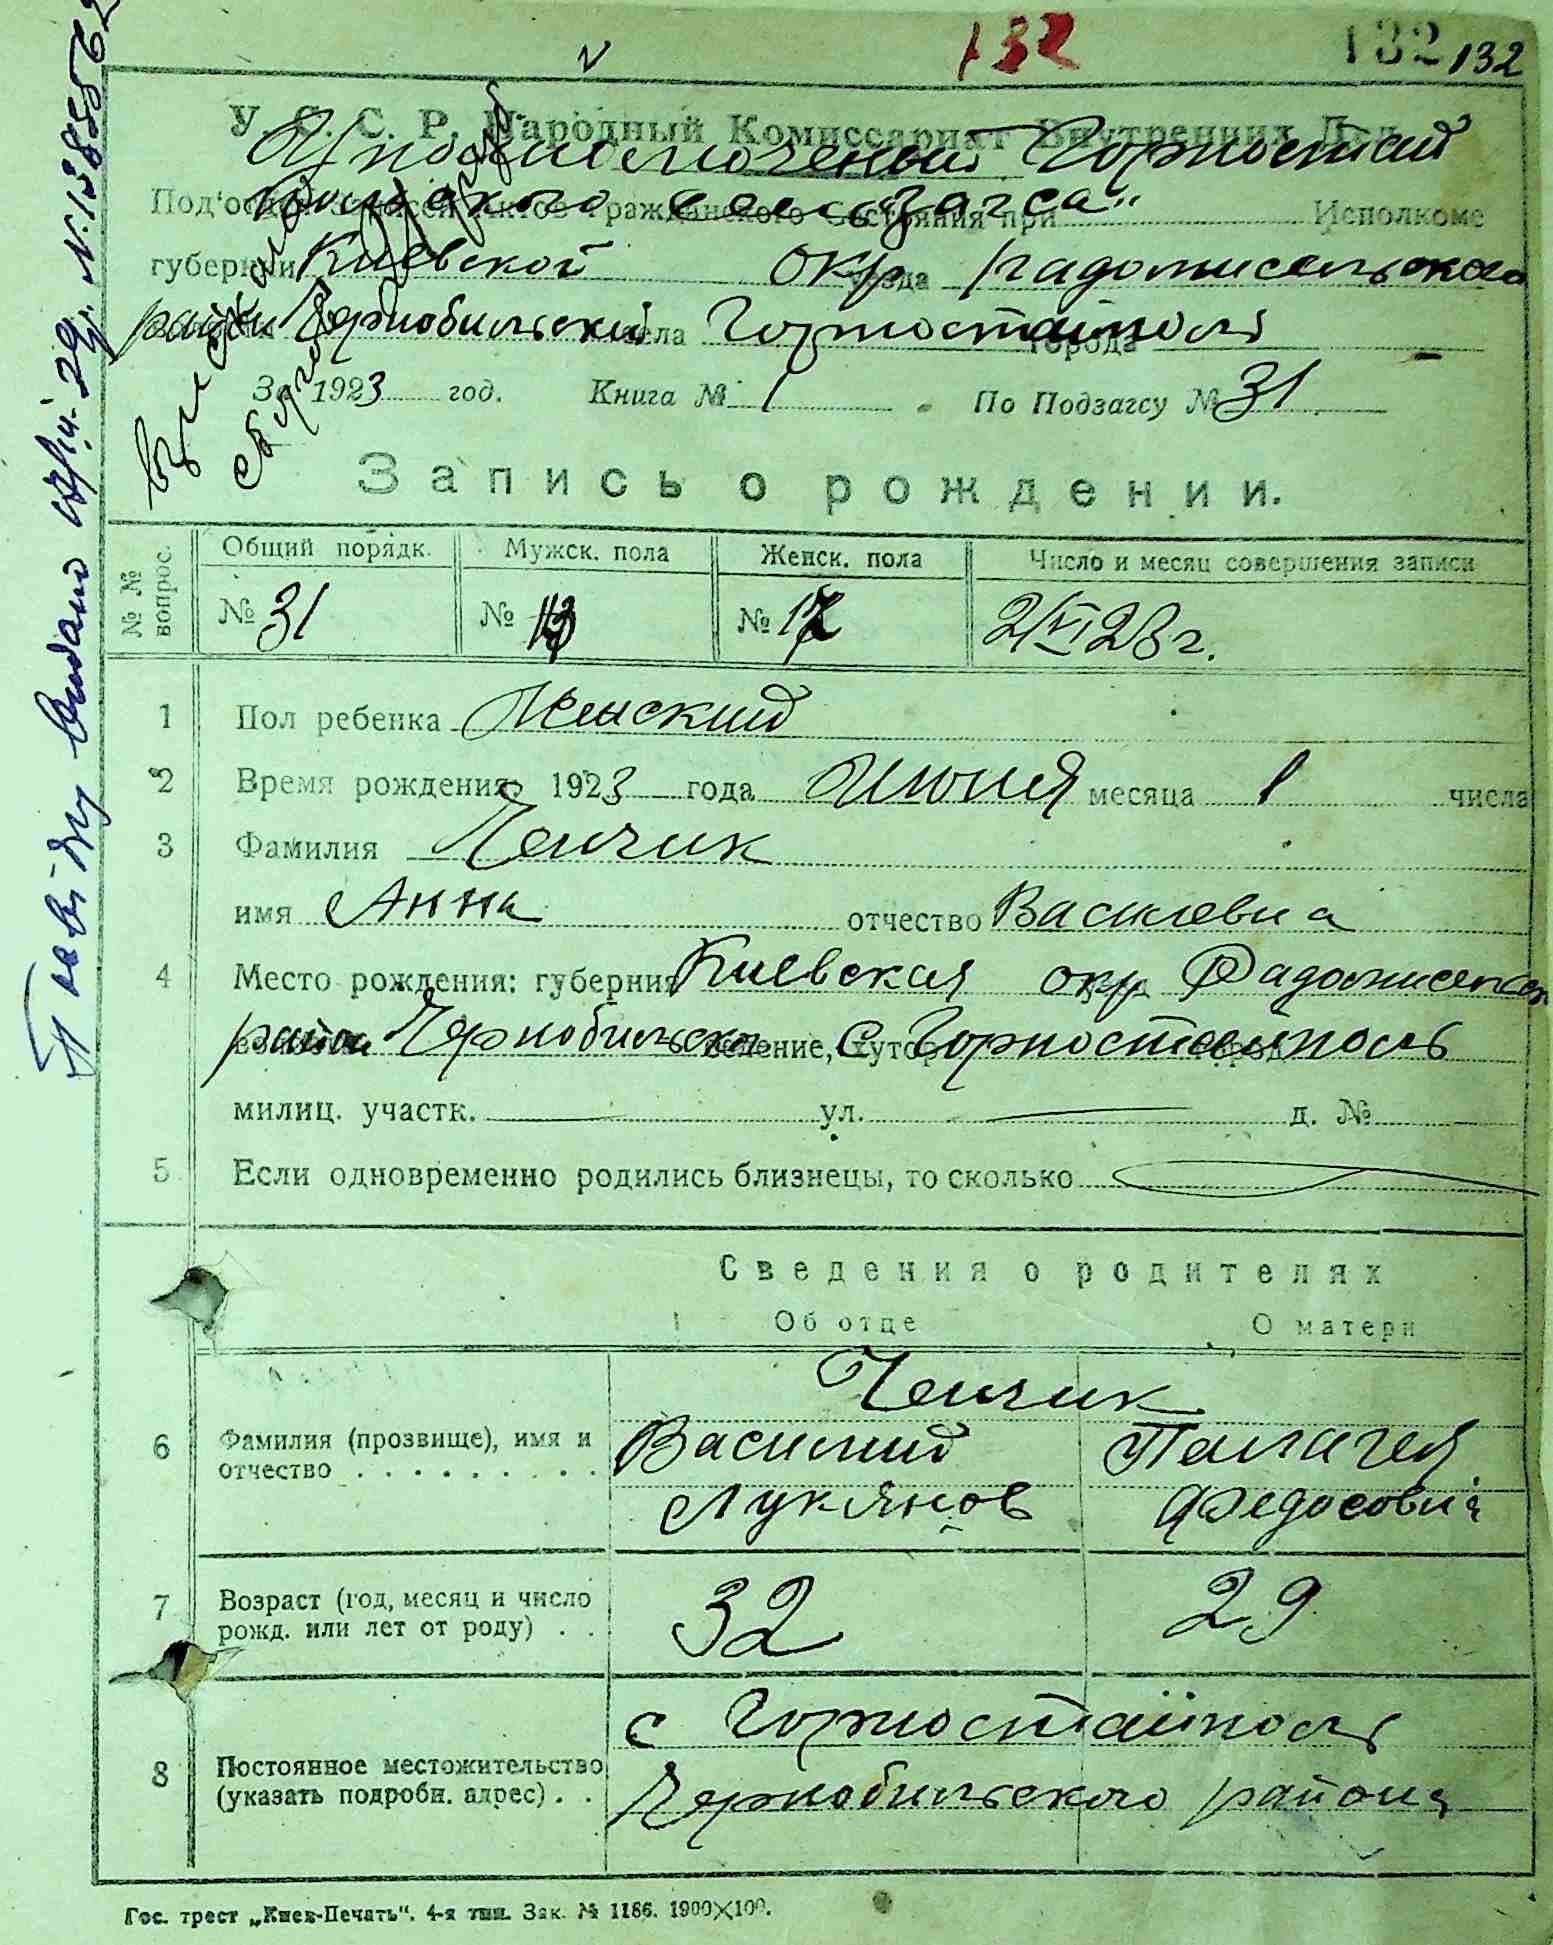 132 132 132
У. С. С. Р. Народный Комиссариат Внутренних Дел
Горностай
польского сель „Загса“
Под'отдел Записей Актов Гражданского Состояния при Исполкоме
губернии Киевской окр уезда радомисельского
район Чернобильский села Горностайполь города
За 1923 год. Книга № 1 По Подзагсу № 31
Запись о рождении.
№ № вопрос.
Общий порядк. Мужск. пола Женск. пола Число и месяц совершения записи
№ 31 № № 17 2/VI 23 г.
1 Пол ребенка Женский
2 Время рождения: 1923 года Июня месяца 1 числа
3 Фамилия Ченчик
имя Анна отчество Василевна
4 Место рождения: губерния Киевская окр Радомисельск
район Чернобильск селение, хутор С Горностайполь
милиц. участк. — ул. — д. №
5 Если одновременно родились близнецы, то сколько —
Сведения о родителях
Об отце О матери
Ченчик
6 Фамилия (прозвище), имя и отчество Василий Палагея
Лукянов Федосовна
7 Возраст (год, месяц и число рожд. или лет от роду) 32 29
с Горностайполь
8 Постоянное местожительство (указать подробн. адрес) Чернобильского района
Гос. трест „Киев-Печать“. 4-я тип. Зак. № 1166. 1900×100.